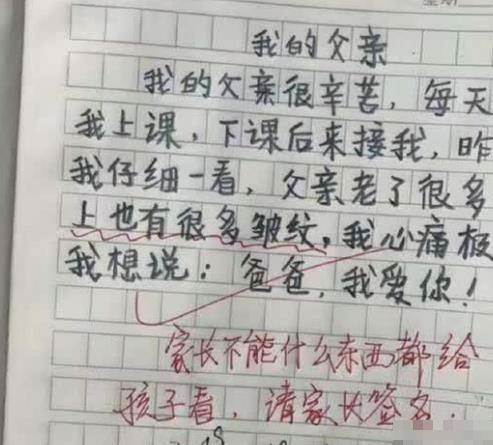 我的父亲
我的父亲很辛苦，每天
我上课，下课后来接我，昨
我仔细一看，父亲老了很多
上也有很多皱纹，我心痛极
我想说：爸爸，我爱你！
家长不能什么东西都给
孩子看，请家长签名.